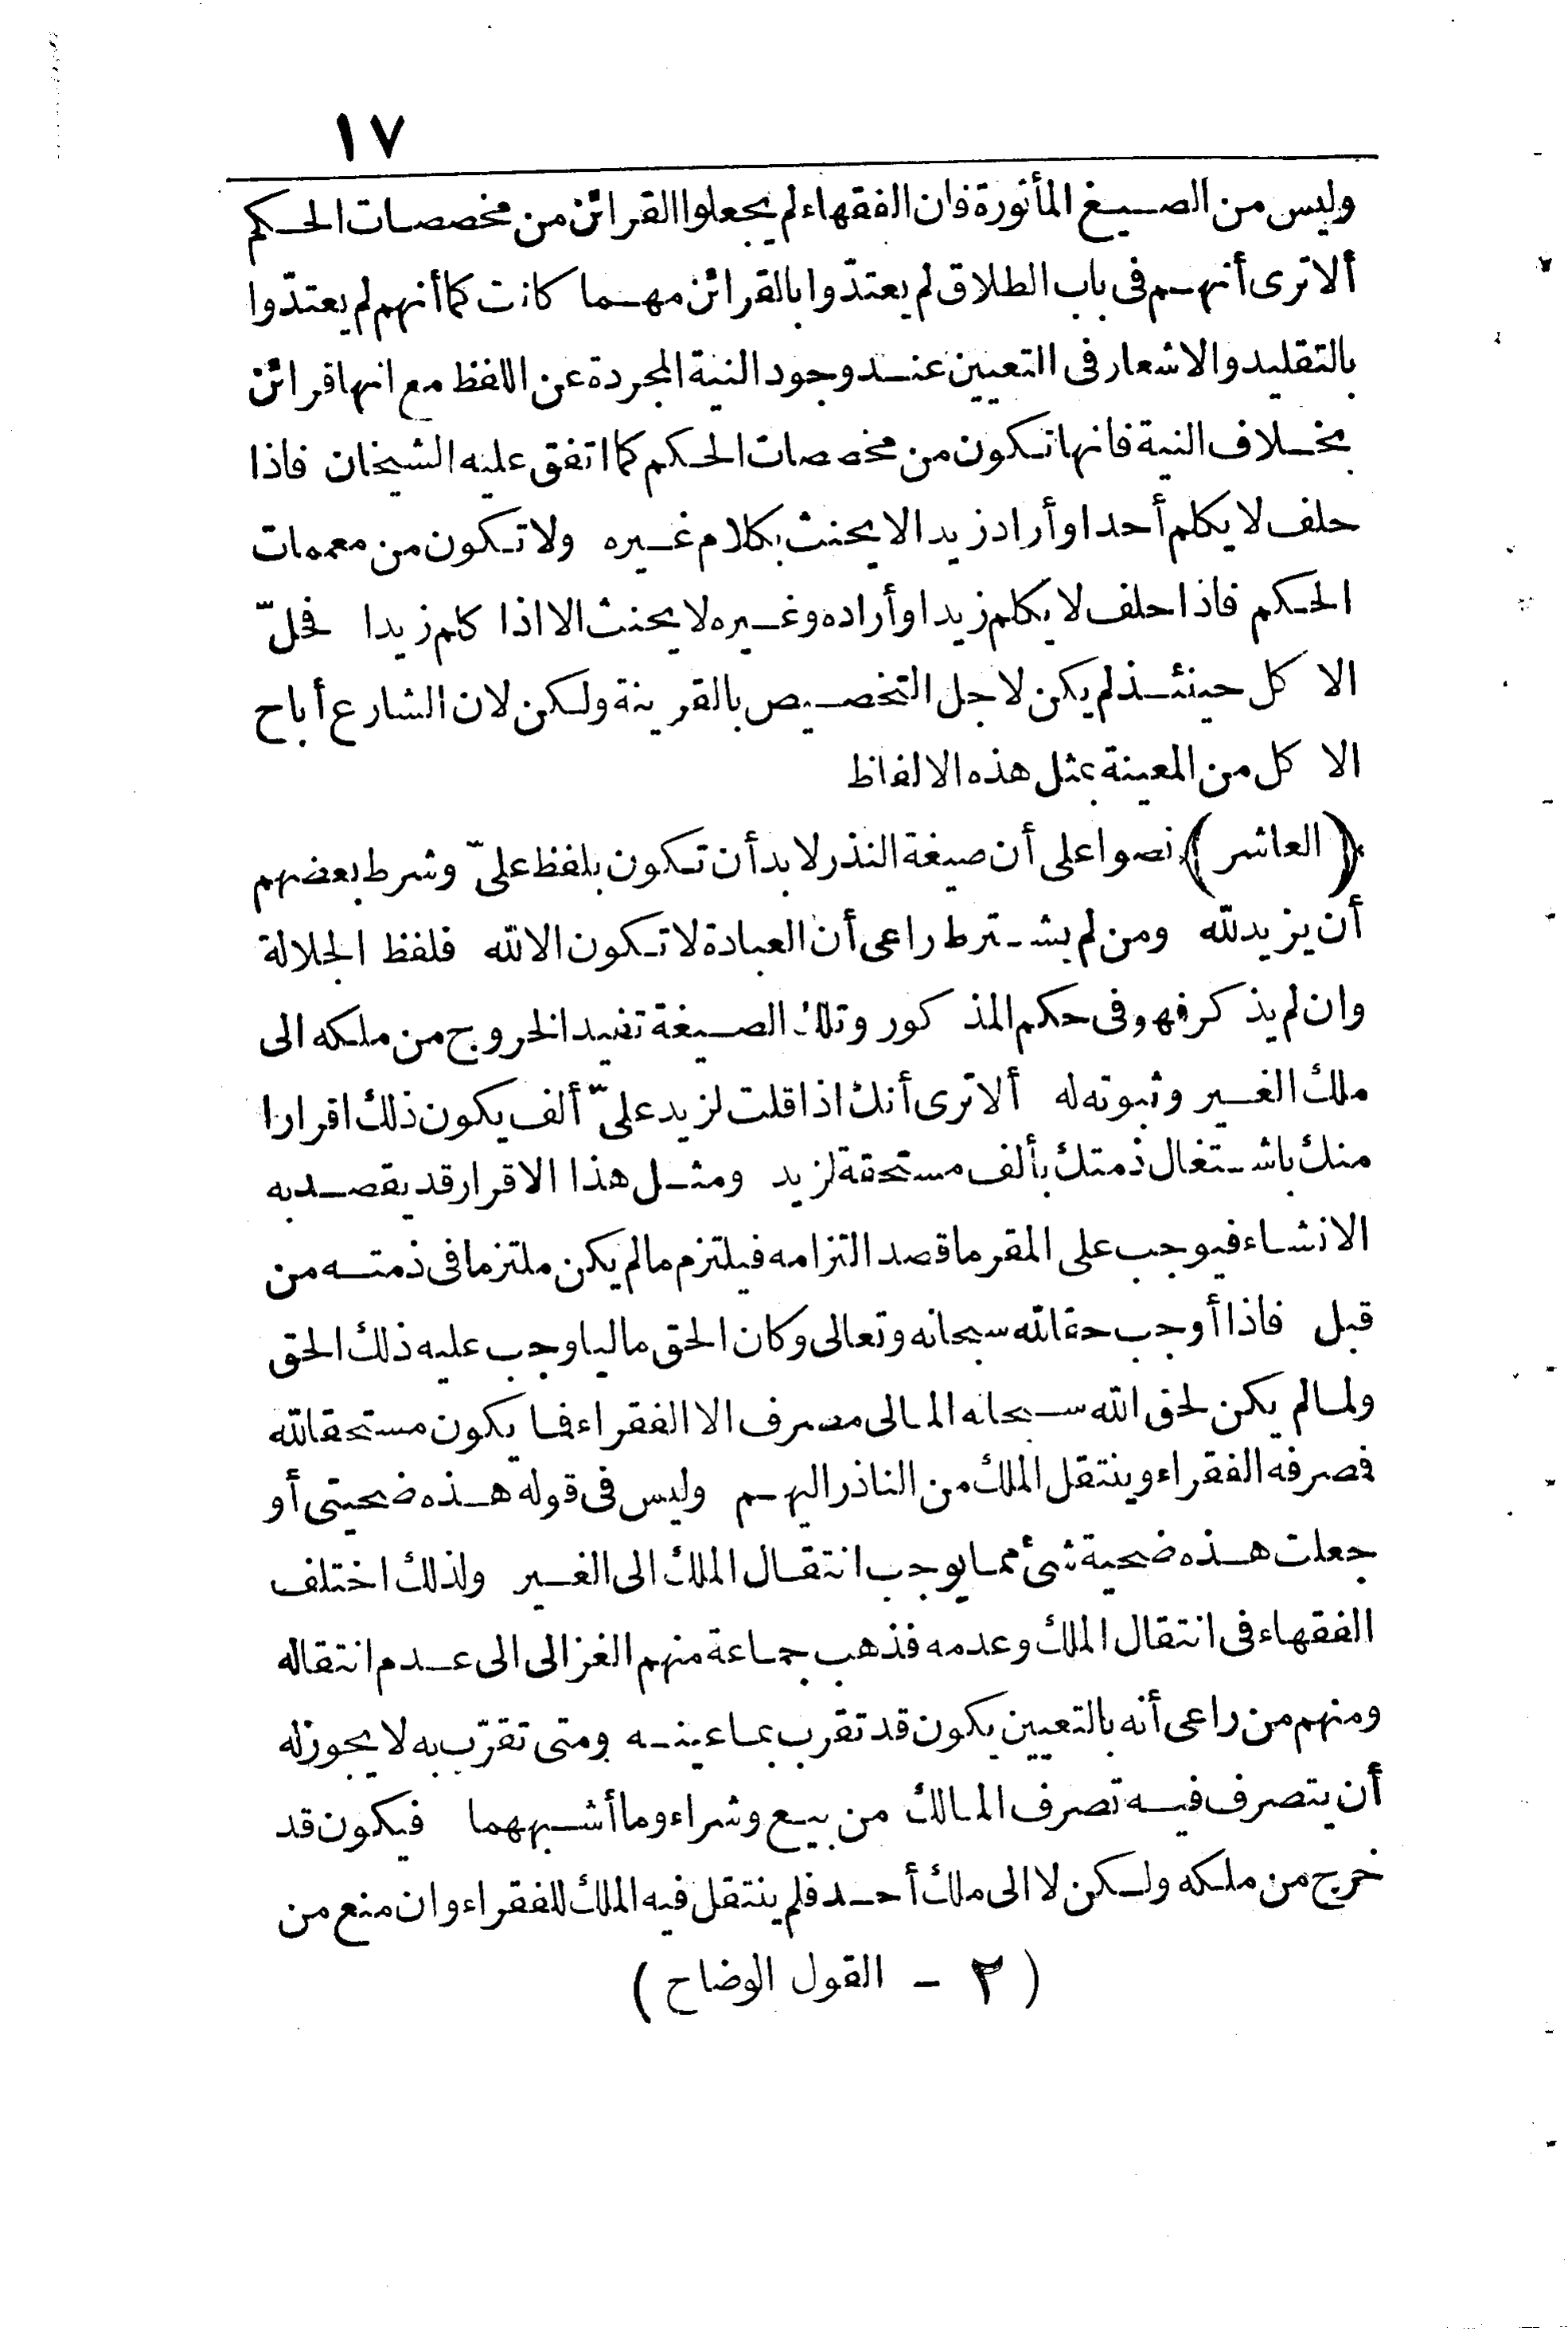 ١٧
وليس من الصيغ المأثورة فان الفقهاء لم يجعلوا القرائن من مخصصات الحكم
ألا ترى أنهم فى باب الطلاق لم يعتدّوا بالقرائن مهما كانت كما أنهم لم يعتدّوا
بالتقليد والاشعار فى التعيين عند وجود النية المجردة عن اللفظ مع انها قرائن
بخلاف النية فانها تكون من مخصصات الحكم كما اتفق عليه الشيخان فاذا
حلف لا يكلم أحدا وأراد زيدا لا يحنث بكلام غيره ولا تكون من معممات
الحكم فاذا حلف لا يكلم زيدا وأراده وغيره لا يحنث الا اذا كلم زيدا فحلّ
الاكل حينئذ لم يكن لاجل التخصيص بالقرينة ولكن لان الشارع أباح
الاكل من المعينة بمثل هذه الالفاظ
﴿ العاشر ﴾ نصوا على أن صيغة النذر لا بد أن تكون بلفظ علىّ وشرط بعضهم
أن يزيد لله ومن لم يشترط راعى أن العبادة لا تكون الا لله فلفظ الجلالة
وان لم يذكر فهو فى حكم المذكور وتلك الصيغة تفيد الخروج من ملكه الى
ملك الغير وثبوته له ألا ترى أنك اذا قلت لزيد علىّ ألف يكون ذلك اقرارا
منك باشتغال ذمتك بألف مستحقة لزيد ومثل هذا الاقرار قد يقصد به
الانشاء فيوجب على المقر ما قصد التزامه فيلتزم ما لم يكن ملتزما فى ذمته من
قبل فاذا أوجب حقا لله سبحانه وتعالى وكان الحق ماليا وجب عليه ذلك الحق
ولما لم يكن لحق الله سبحانه المالى مصرف الا الفقراء فما يكون مستحقا لله
فصرفه الفقراء وينتقل الملك من الناذر اليهم وليس فى قوله هذه ضحيتى أو
جعلت هذه ضحية شئ مما يوجب انتقال الملك الى الغير ولذلك اختلف
الفقهاء فى انتقال الملك وعدمه فذهب جماعة منهم الغزالى الى عدم انتقاله
ومنهم من راعى أنه بالتعيين يكون قد تقرب بما عينه ومتى تقرّب به لا يجوز له
أن يتصرف فيه تصرف المالك من بيع وشراء وما أشبههما فيكون قد
خرج من ملكه ولكن لا الى ملك أحد فلم ينتقل فيه الملك للفقراء وان منع من
( ٢ - القول الوضاح )